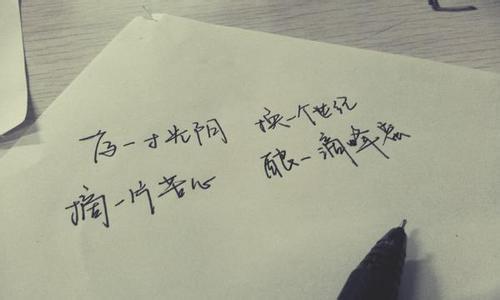 一寸光阴 换一个世纪
摘一片苦心 酿一滴蜂蜜